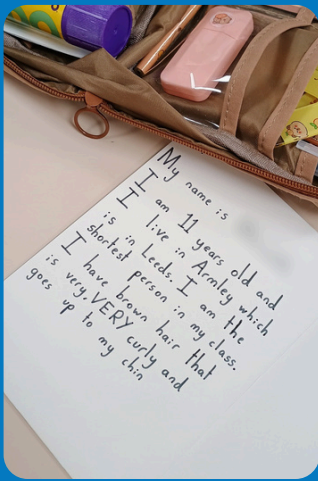 My name is
I am 11 years old and
I live in Armley which
is in Leeds. I am the
shortest person in my class.
I have brown hair that
is very. VERY curly and
goes up to my chin